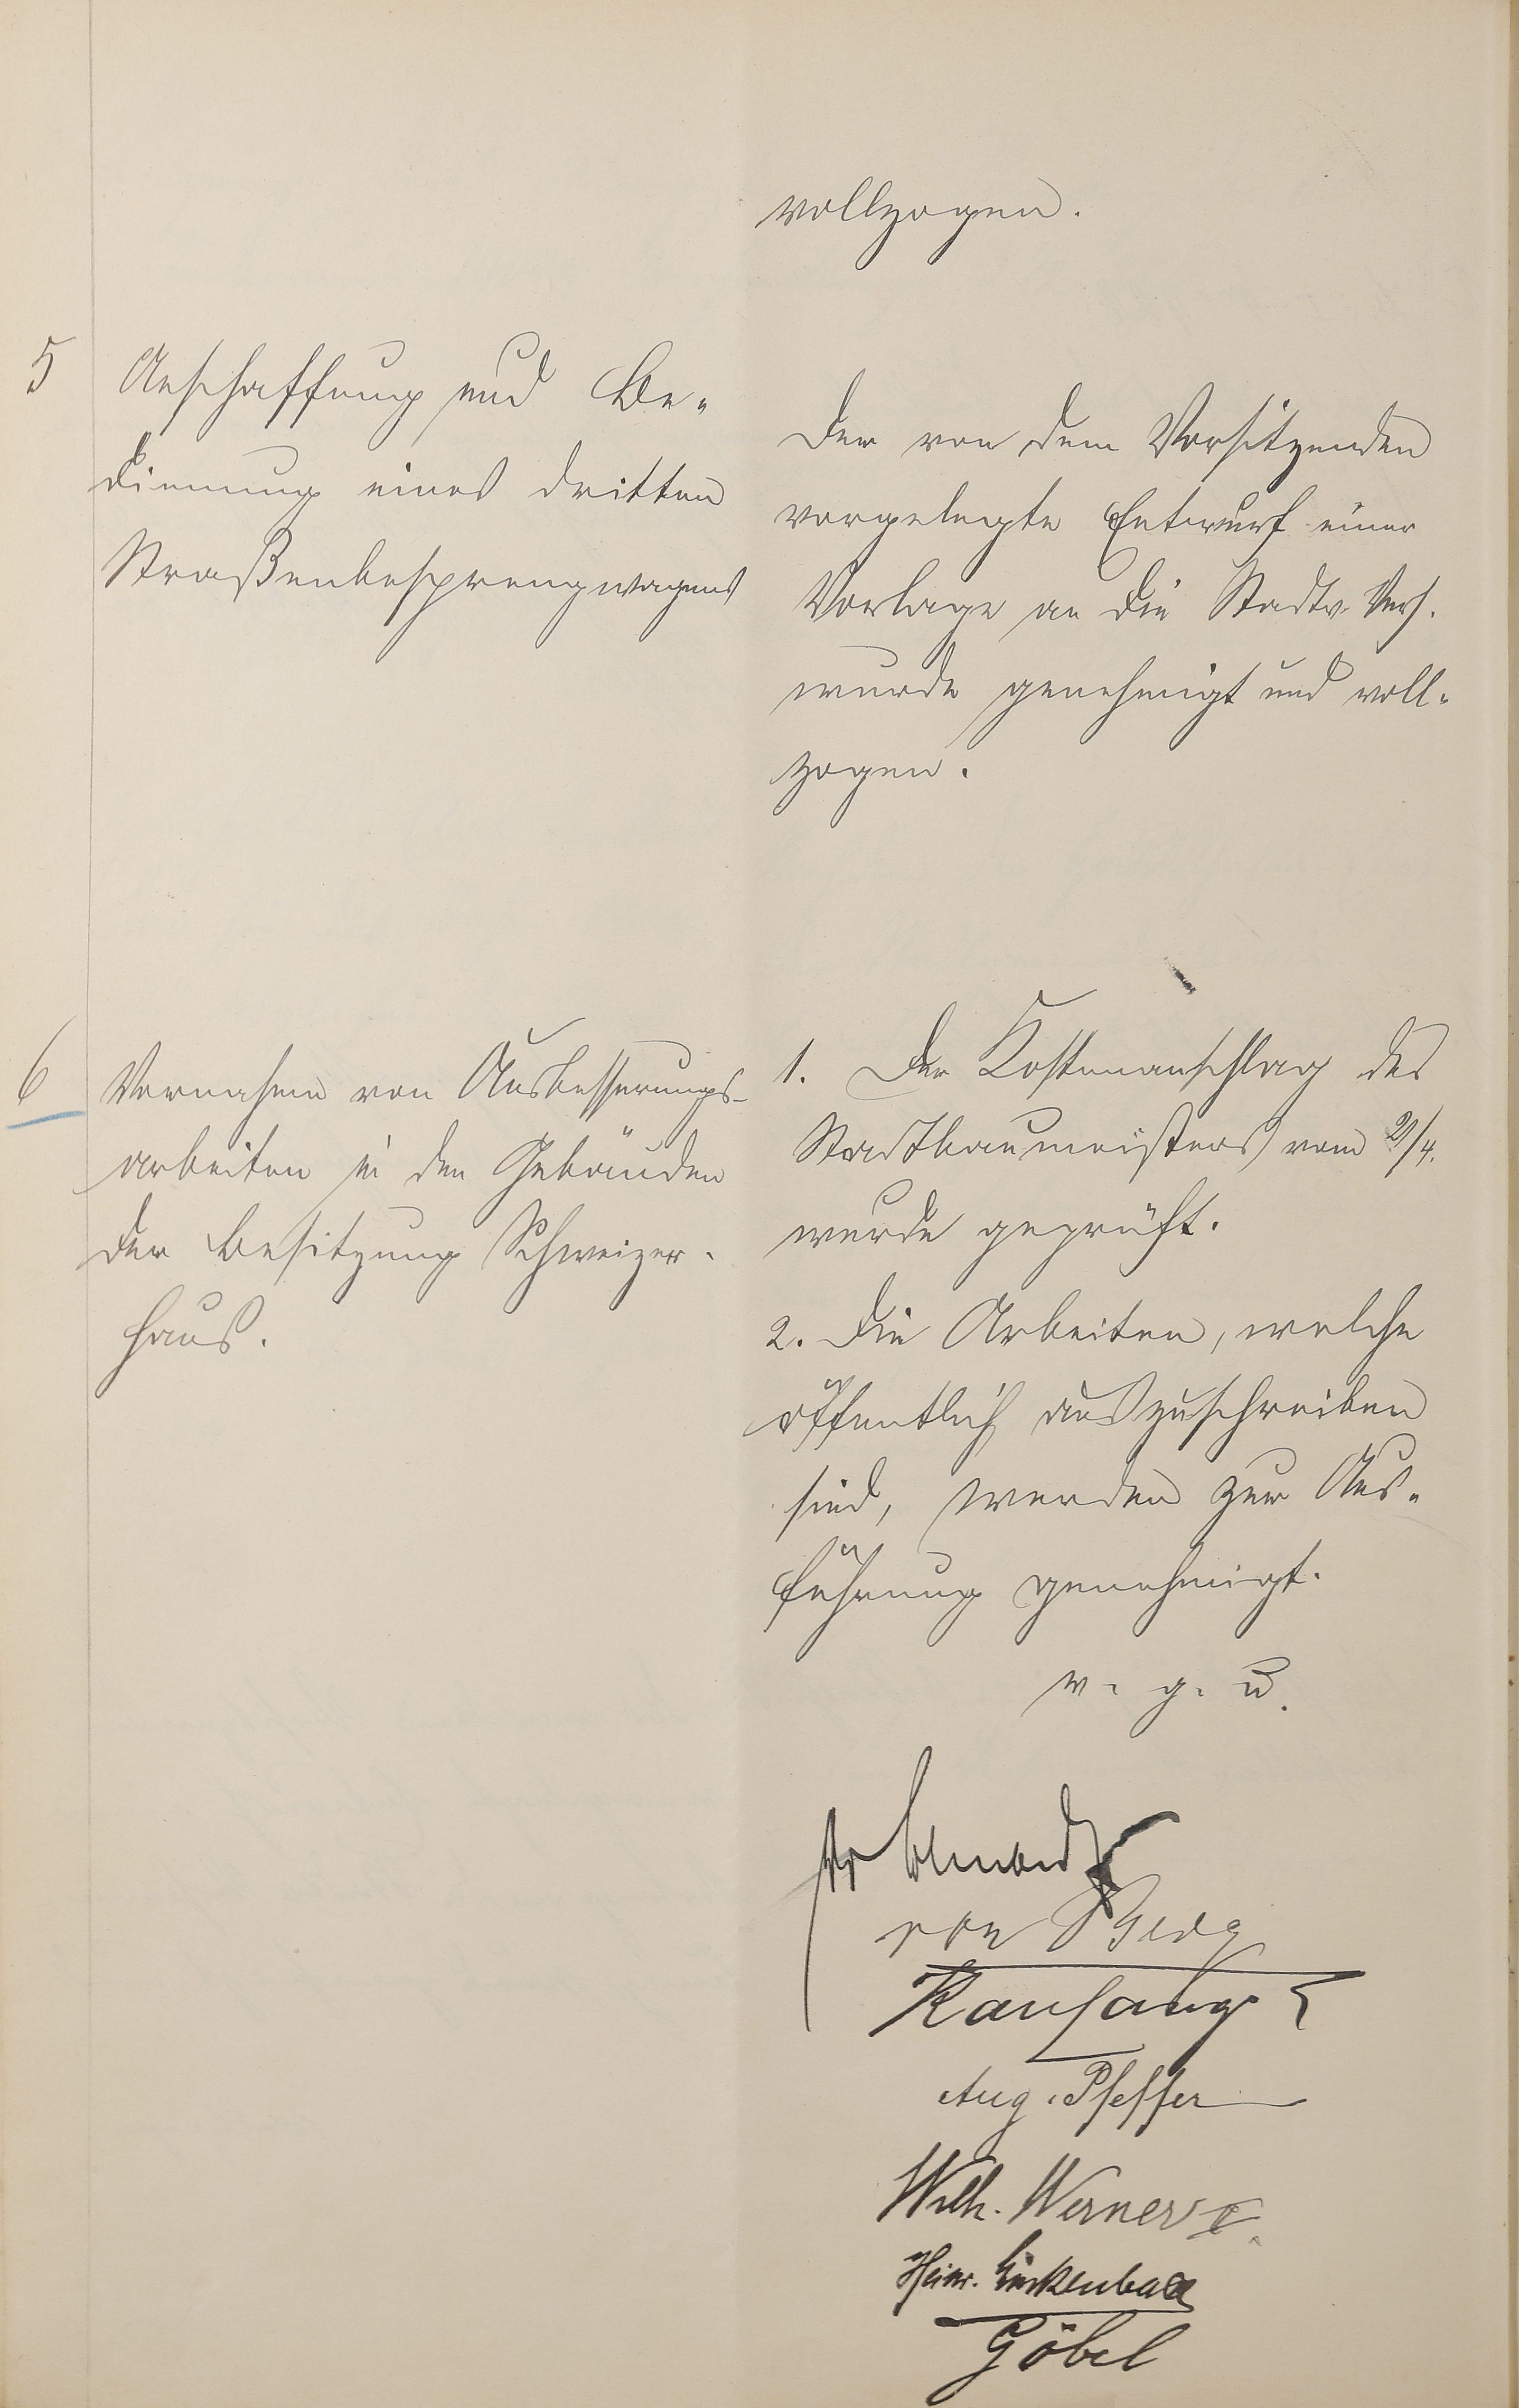 vollzogen.
5
Anschaffung und Be-
dienung eines dritten
Straßenbesprengwagens
Der von dem Vorsitzenden
vorgelegte Entwurf einer
Vorlage an die Stadtv. Vers.
wurde genehmigt und voll-
zogen.
6
Vornahme von Ausbesserungs-
arbeiten in den Gebäuden
der Besitzung Schweizer-
haus.
1. Der Kostenanschlag des
Stadtbaumeisters vom 2/4.
wurde geprüft.
2. Die Arbeiten, welche
öffentlich auszuschreiben
sind, werden zur Aus-
führung genehmigt.
v. g. u.
von Berg
Aug. Pfeffer
Wilh. Werner
Heinr.
Göbel